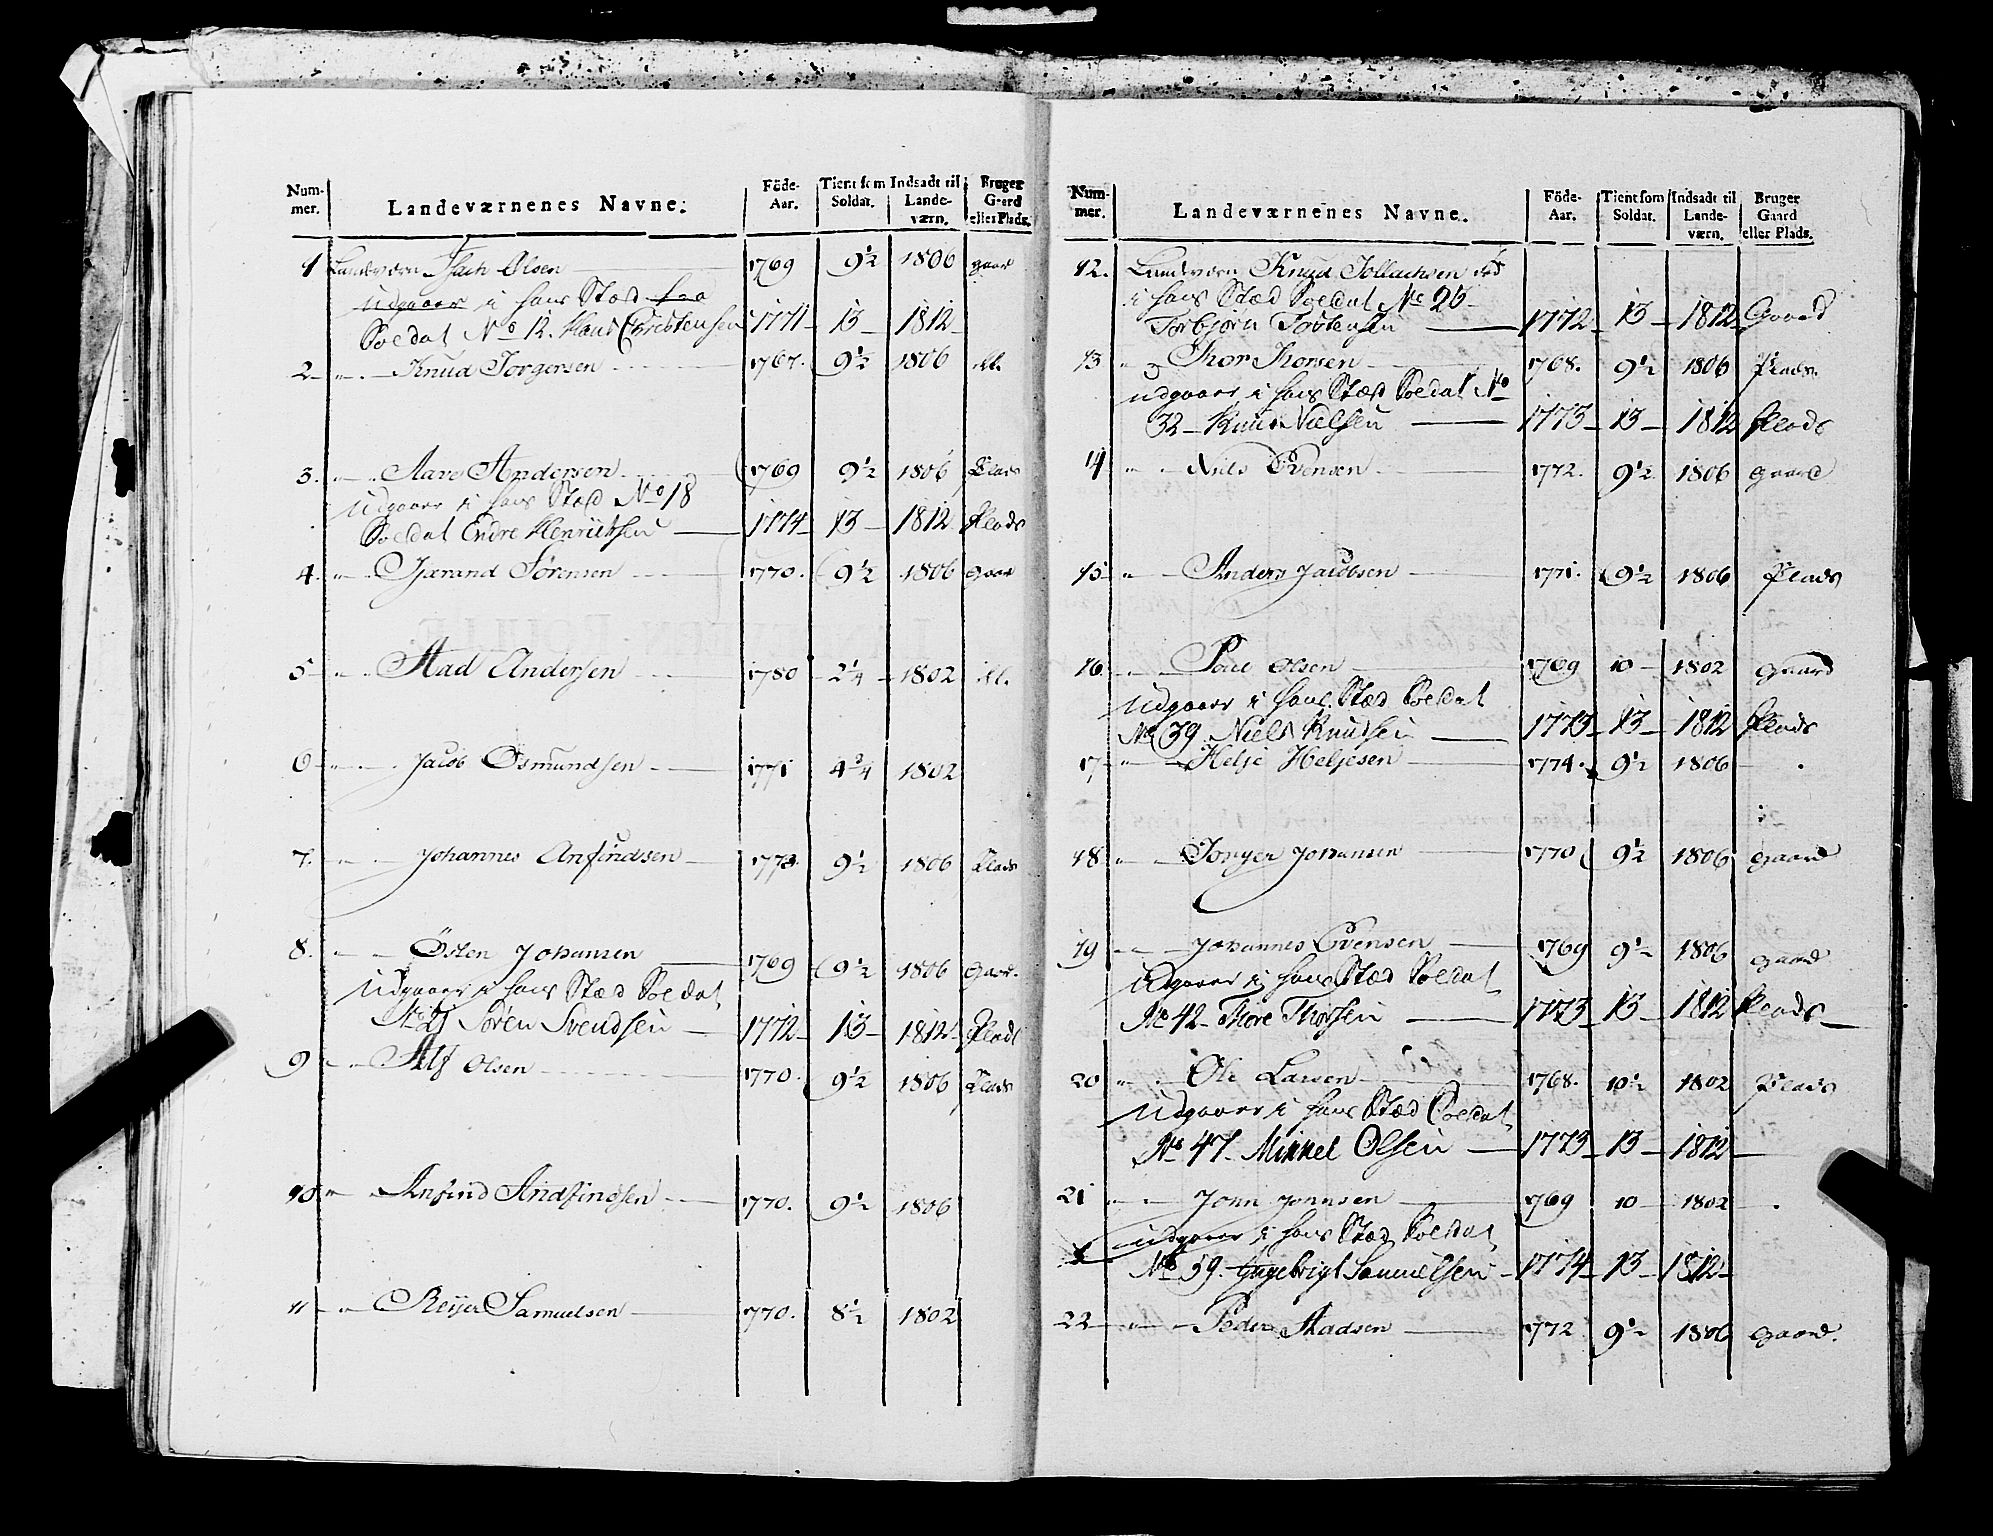 Num-mer. Landeværnenes Navne. Föde-Aar. Tient som Soldat. Indsadt til Lande-værn. Bruger Gaard eller Plads.
1 Landeværn Isach Olsen 1769 9½ 1806 gaar
udgaaer i hans Stæd fra
Soldat No 12. Hans Christensen 1771 13 1812
2 " Knud Torgersen 1767. 9½ 1806 dd.
3. " Aare Andersen 1769 9½ 1806 Plads
udgaaer i hans Stæd No 18
Soldat Endre Henrichsen 1774 13 1812 Plads
4. " Gjærand Sörensen 1770. 9½ 1806 gaar
5 " Aad Andersen 1780 2¼ 1802 dd.
6 " Jacob Osmundsen 1771 4¾ 1802
7. " Johannes Anfindsen 1773 9½ 1806 Plads
8. " Östen Johansen 1769 9½ 1806 Gaar.
Udgaaer i hans Stæd Soldat
No 21 Sören Svendsen 1772 13 1812 Plads
9 " Alf Olsen 1770. 9½ 1806 Plads
10 " Anfind Andfindsen 1770. 9½ 1806
11 " Reijer Samuelsen 1770. 8½ 1802
Num-mer. Landeværnenes Navne. Föde-Aar. Tient som Soldat. Indsadt til Lande-værn. Bruger Gaard eller Plads.
12. Landeværn Knud Tollachsen
i hans Stæd Soldat No 25
Torbjörn Tostensen 1772 13 1812 Gaard
13 " Thor Thorsen 1768. 9½ 1806 Plads
udgaaer i hans Stæd Soldat No
32 Knud Nielsen 1773 13 1812 Plads
14 " Niels Evensen 1772. 9½ 1806 gaard
15 " Anders Jacobsen 1771. 9½ 1806 Plads
16 " Poul Olsen 1769 10 1802 gaard
Udgaaer i hans Stæd Soldat
No 39 Niels Knudsen 1773 13 1812 Plads
17 " Helje Heljesen 1774. 9½ 1806
18 " Torger Johansen 1770 9½ 1806 gaard
19 " Johannes Evensen 1769 9½ 1806 gaard
Udgaaer i hans Stæd Soldat
No 42 Thore Thorsen 1773 13 1812 Plads
20 " Ole Larsen 1768. 10½ 1802 Plads
Udgaaer i hans Stæd Soldat
No 47. Mikkel Olsen 1773 13 1812
21 " John Johnsen 1769 10 1802
udgaaer i hans Stæd Soldat
No 59. Engebrigt Samuelsen 1774 13 1812
22 " Peder Aadsen 1772 9½ 1806 gaard.